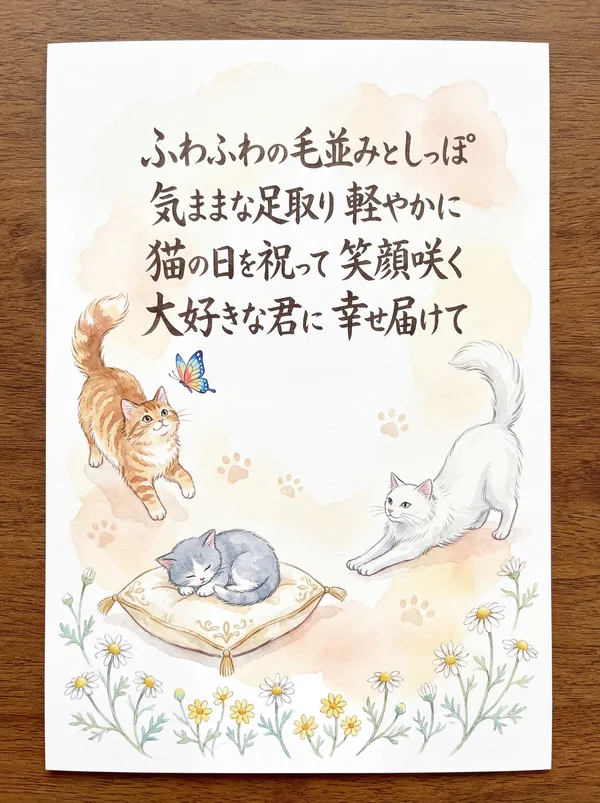 ふわふわの毛並みとしっぽ
気ままな足取り 軽やかに
猫の日を祝って 笑顔咲く
大好きな君に 幸せ届けて